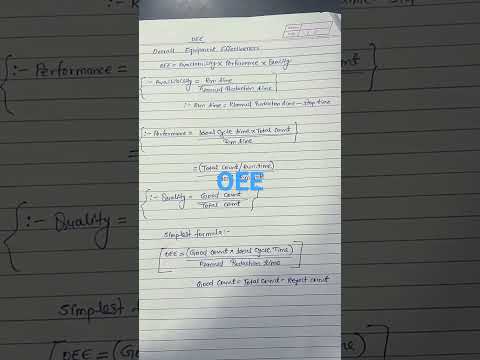 OEE
Overall Equipment Effectiveness
OEE = Availability × Performance × Quality
:- Availability = Run time
Planned Production time
:- Run time = Planned Production time - stop time
:- Performance = Ideal Cycle time × Total Count
Run time
= (Total Count / Run time)
OEE
:- Quality = Good Count
Total Count
Simplest formula:-
OEE = (Good Count × Ideal Cycle Time)
Planned Production time
Good Count = Total Count - Reject Count
:- Performance =
:- Quality =
Simplest
OEE = (Go